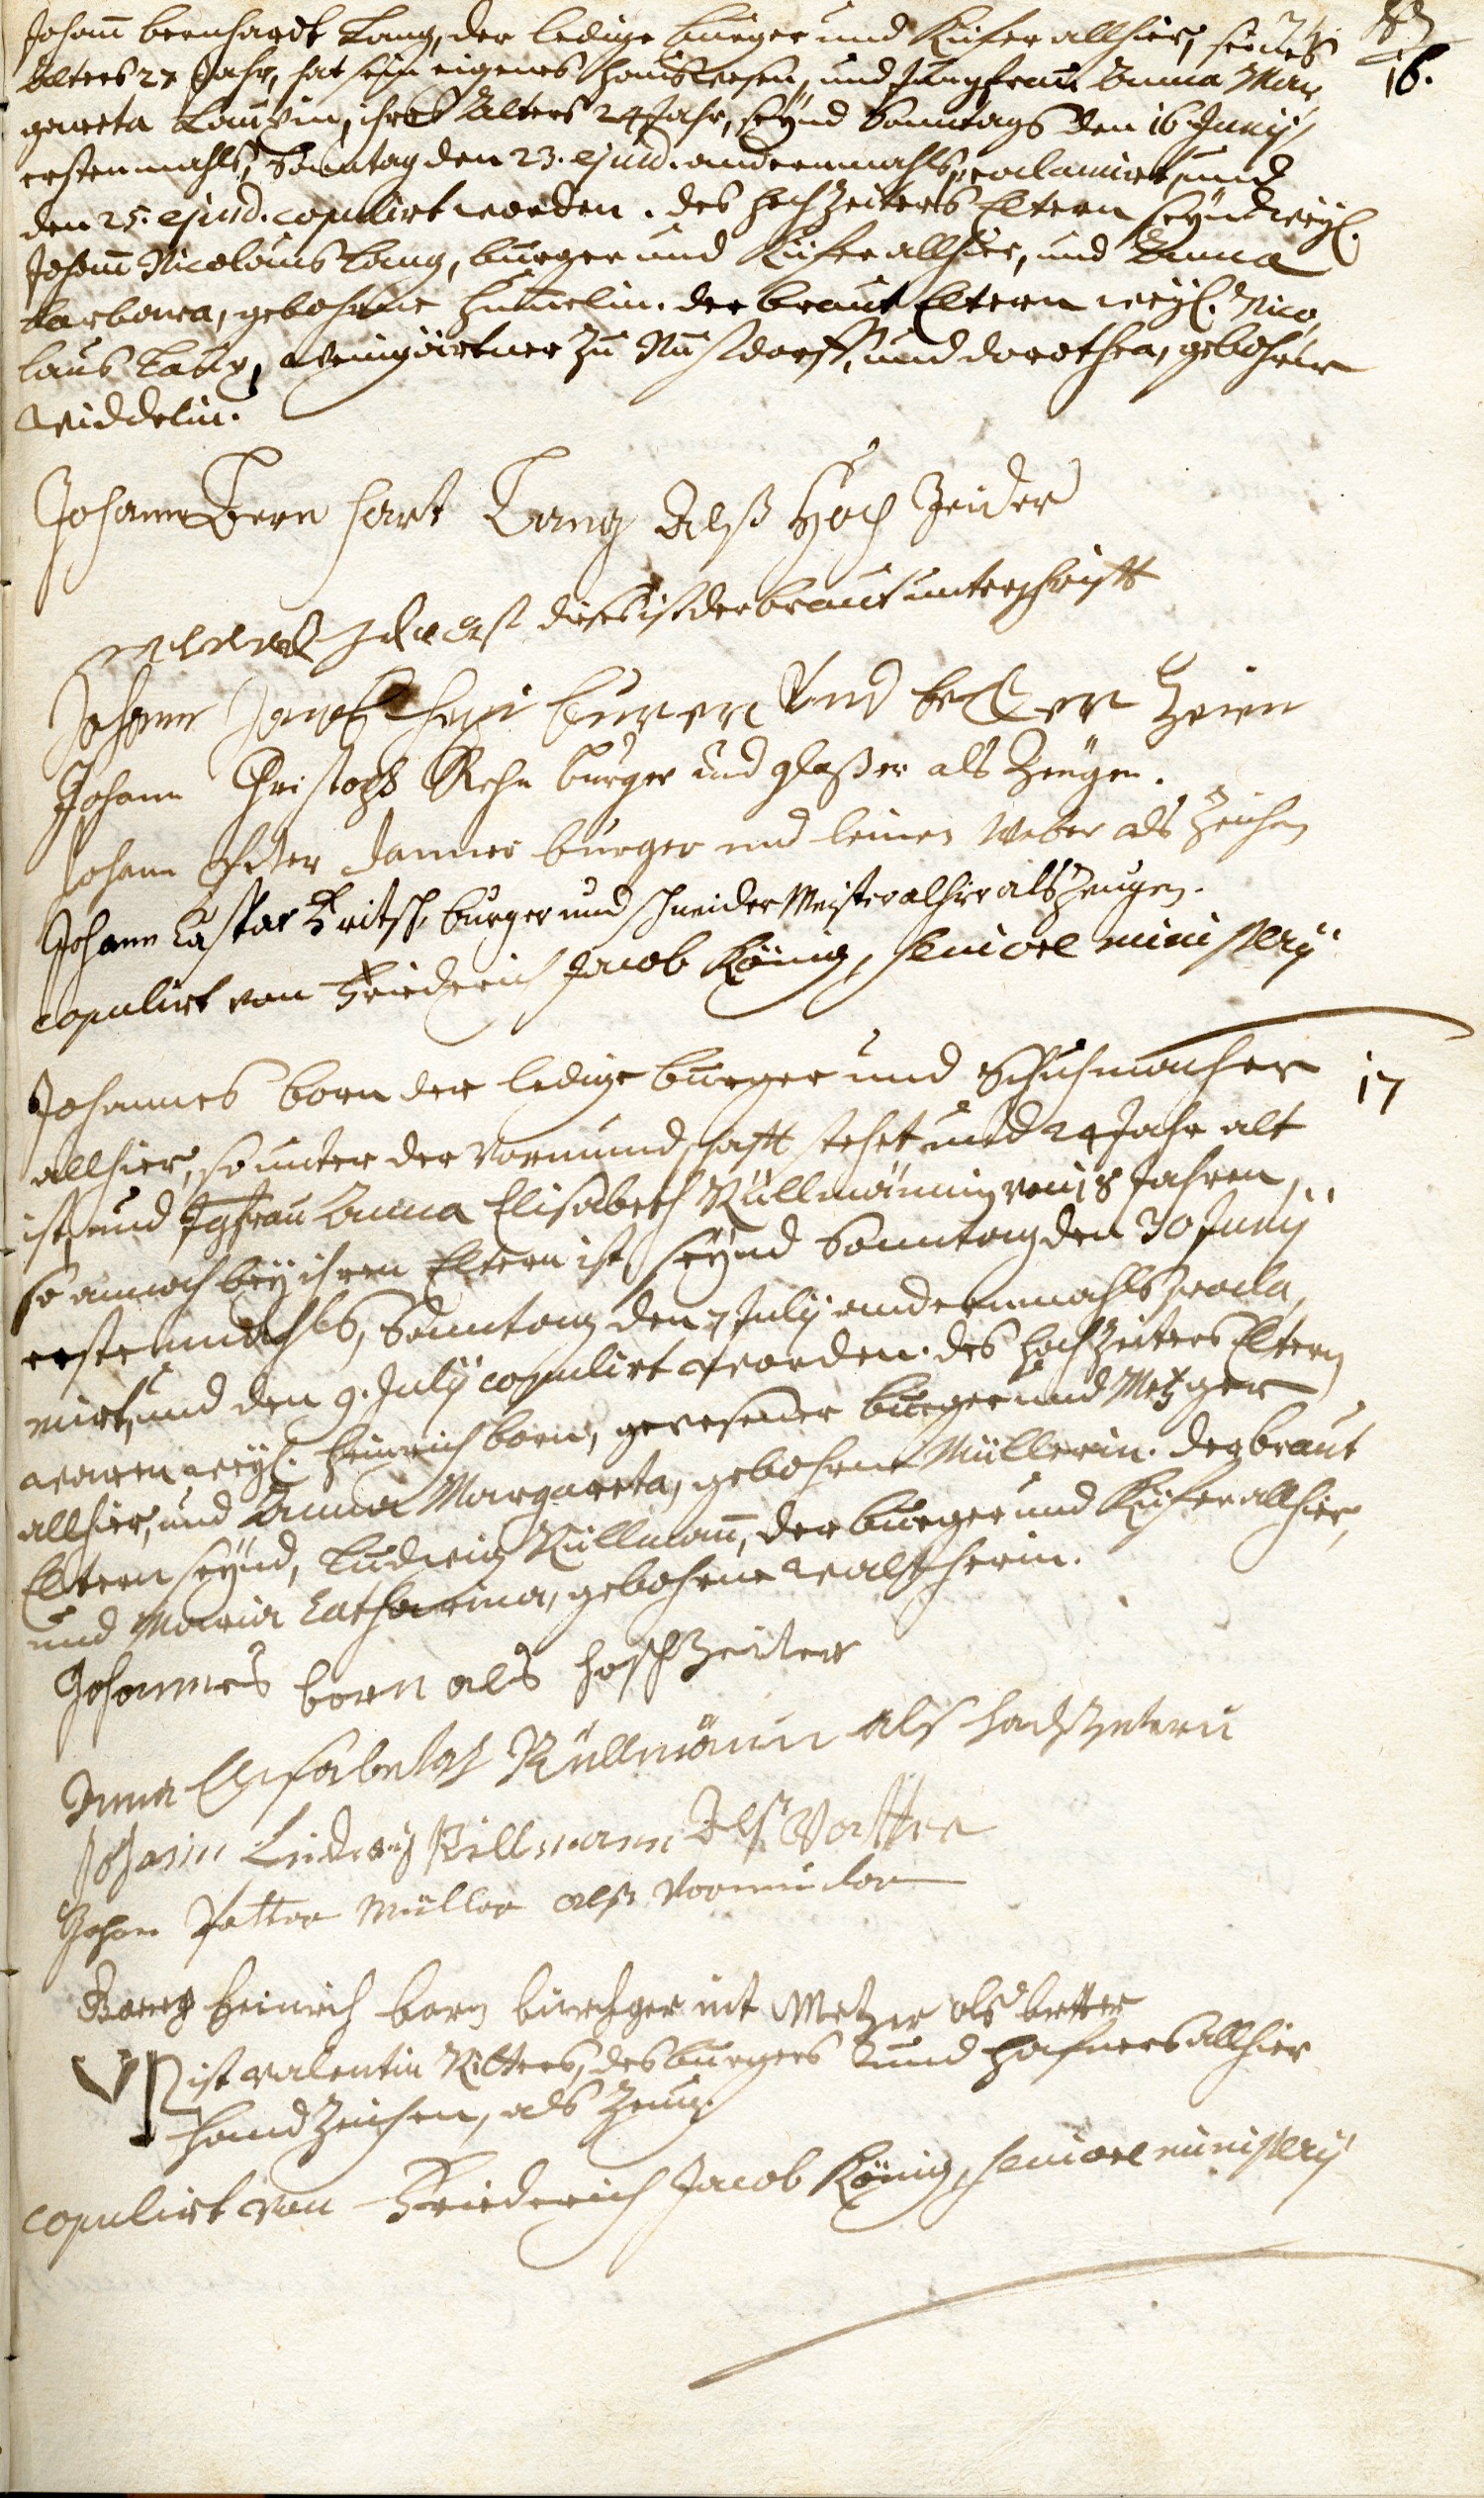 Johann bernhardt Lang, der ledige burger und Küfer allhier, seines
16.
Alters 27 Jahr, hat sein eigenes Hauswesen, und Jungfrau Anna Mar
gareta Lauxin, ihres Alters 24 Jahr, seynd Sonntags den 16 Junij
erstenmahls, Sonntag den 23. ejusd. andernmahls proclamirt, und
den 25. ejusd. copulirt worden. des hochzeiters Eltern seynd weyl.
Johann Nicolaus Lang, burger und Küfer allhier, und Anna
barbara, gebohrne Hummelin. der braut Eltern weyl. Nico,
laus Laux, weingärtner zu Nußdorff, und dorothea, gebohrne
Widdelin.
Johann Bern hart Lang Alß Hoch Zeider
dieses ist der braut unterschrifft
Johann Jacob burer Vnd becker Zeien
Johann Christoph Rehn burger und glaßer als Zeugen.
Johann Peter Danner burger und leinen Weber als Zeichen
Johann Caspar Fritsch, burger und schneider Meister alhier als Zeugen.
copulirt von Friederich Jacob König, seniore ministerij
Johannes born der ledige burger und Schuhmacher
17
allhier, so unter der Vormundschafft stehet und 24 Jahr alt
ist, und Jgfrau Anna Elisabeth Küllmännin von 18 Jahren,
so annoch bey ihren Eltern ist, seynd Sonntag den 30 Junij
erstenmahls, Sonntag den 7 Julij andernmahls procla,
mirt, und den 9. Julij copulirt worden. des hochzeiters Eltern
waren weyl. Heinrich born, gewesener burger und Metzger
allhier, und Anna Margareta, gebohrne Müllerin. der braut
Eltern seynd, Ludwig Küllmann, der burger und Küfer allhier,
und Maria Catharina, gebohrne Walscherin.
Johannes born als hochzeiter
Anna Elisabetha Küllmänin als hachzeterii
Johann Ludwig Killmann Alß Vatter
Johan Petter Müller alß Vormünder
Heinrich born burchger unt Metzer als vetter
ist Valentin Ritters, des burgers und hafners allhier
handzeichen, als Zeug.
copulirt von Friederich Jacob König, seniore ministerij